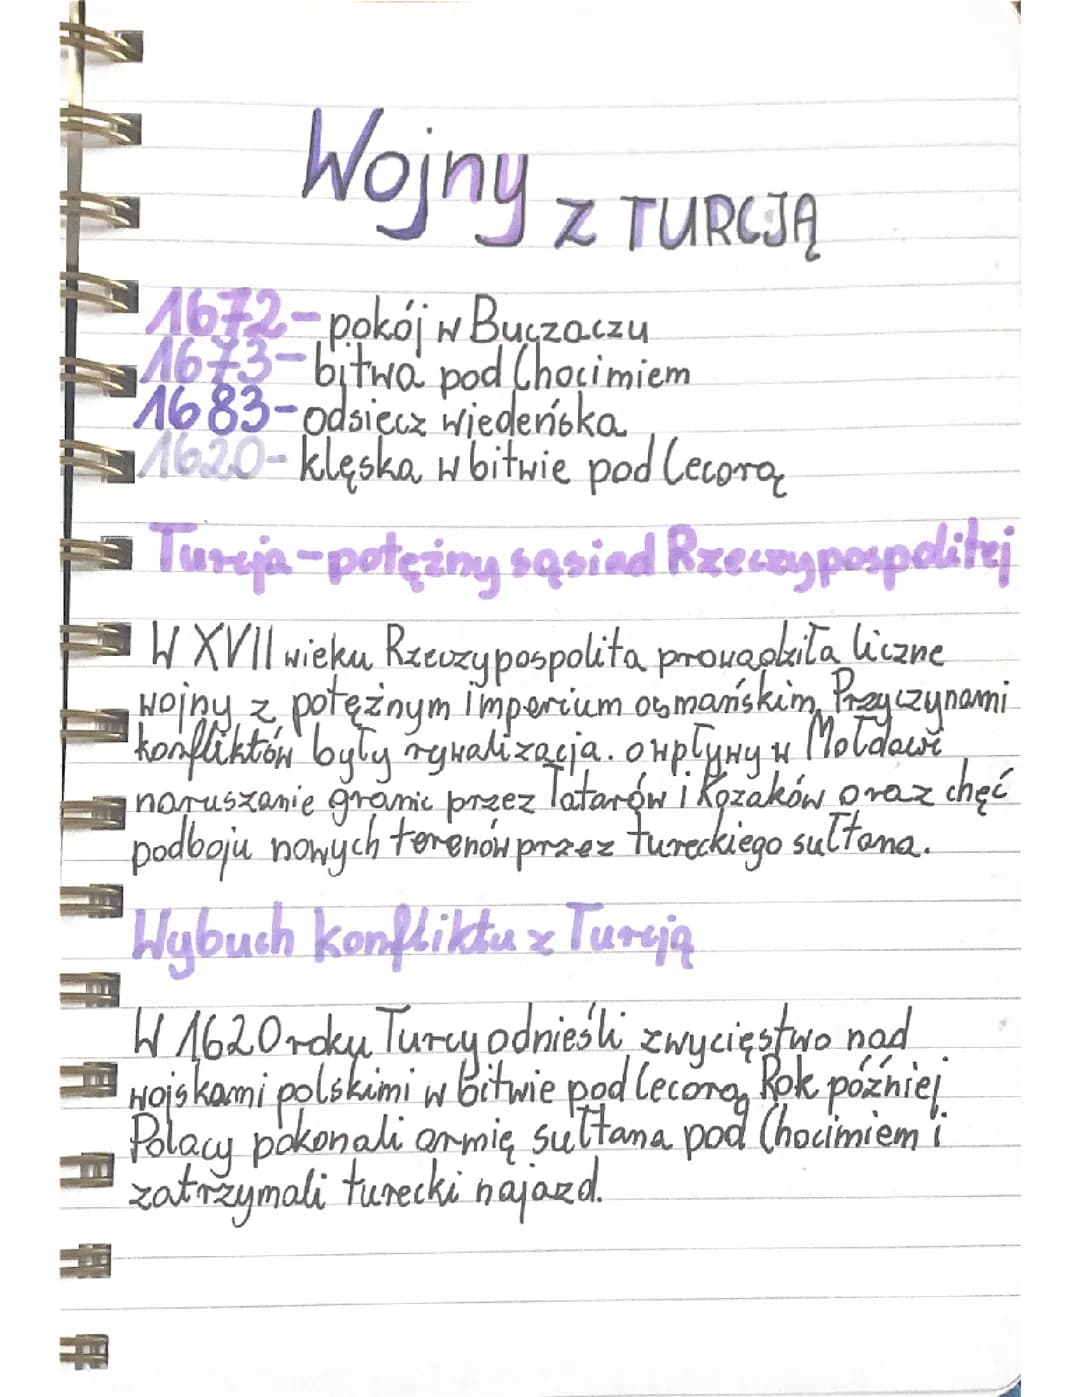 Wojny z TURCJĄ
1672-pokój w Buczaczu
1673-bitwa pod Chocimiem
1683-odsiecz wiedeńska
1620-klęska w bitwie pod Cecorą
Turcja-potężny sąsiad Rzeczypospolitej
W XVII wieku Rzeczypospolita prowadziła liczne
wojny z potężnym imperium osmańskim. Przyczynami
konfliktów były rywalizacja o wpływy w Mołdawi
naruszanie granic przez Tatarów i Kozaków oraz chęć
podboju nowych terenów przez tureckiego sułtana.
Wybuch konfliktu z Turcją
W 1620 roku Turcy odnieśli zwycięstwo nad
wojskami polskimi w bitwie pod Cecorą. Rok później
Polacy pokonali armię sułtana pod Chocimiem i
zatrzymali turecki najazd.